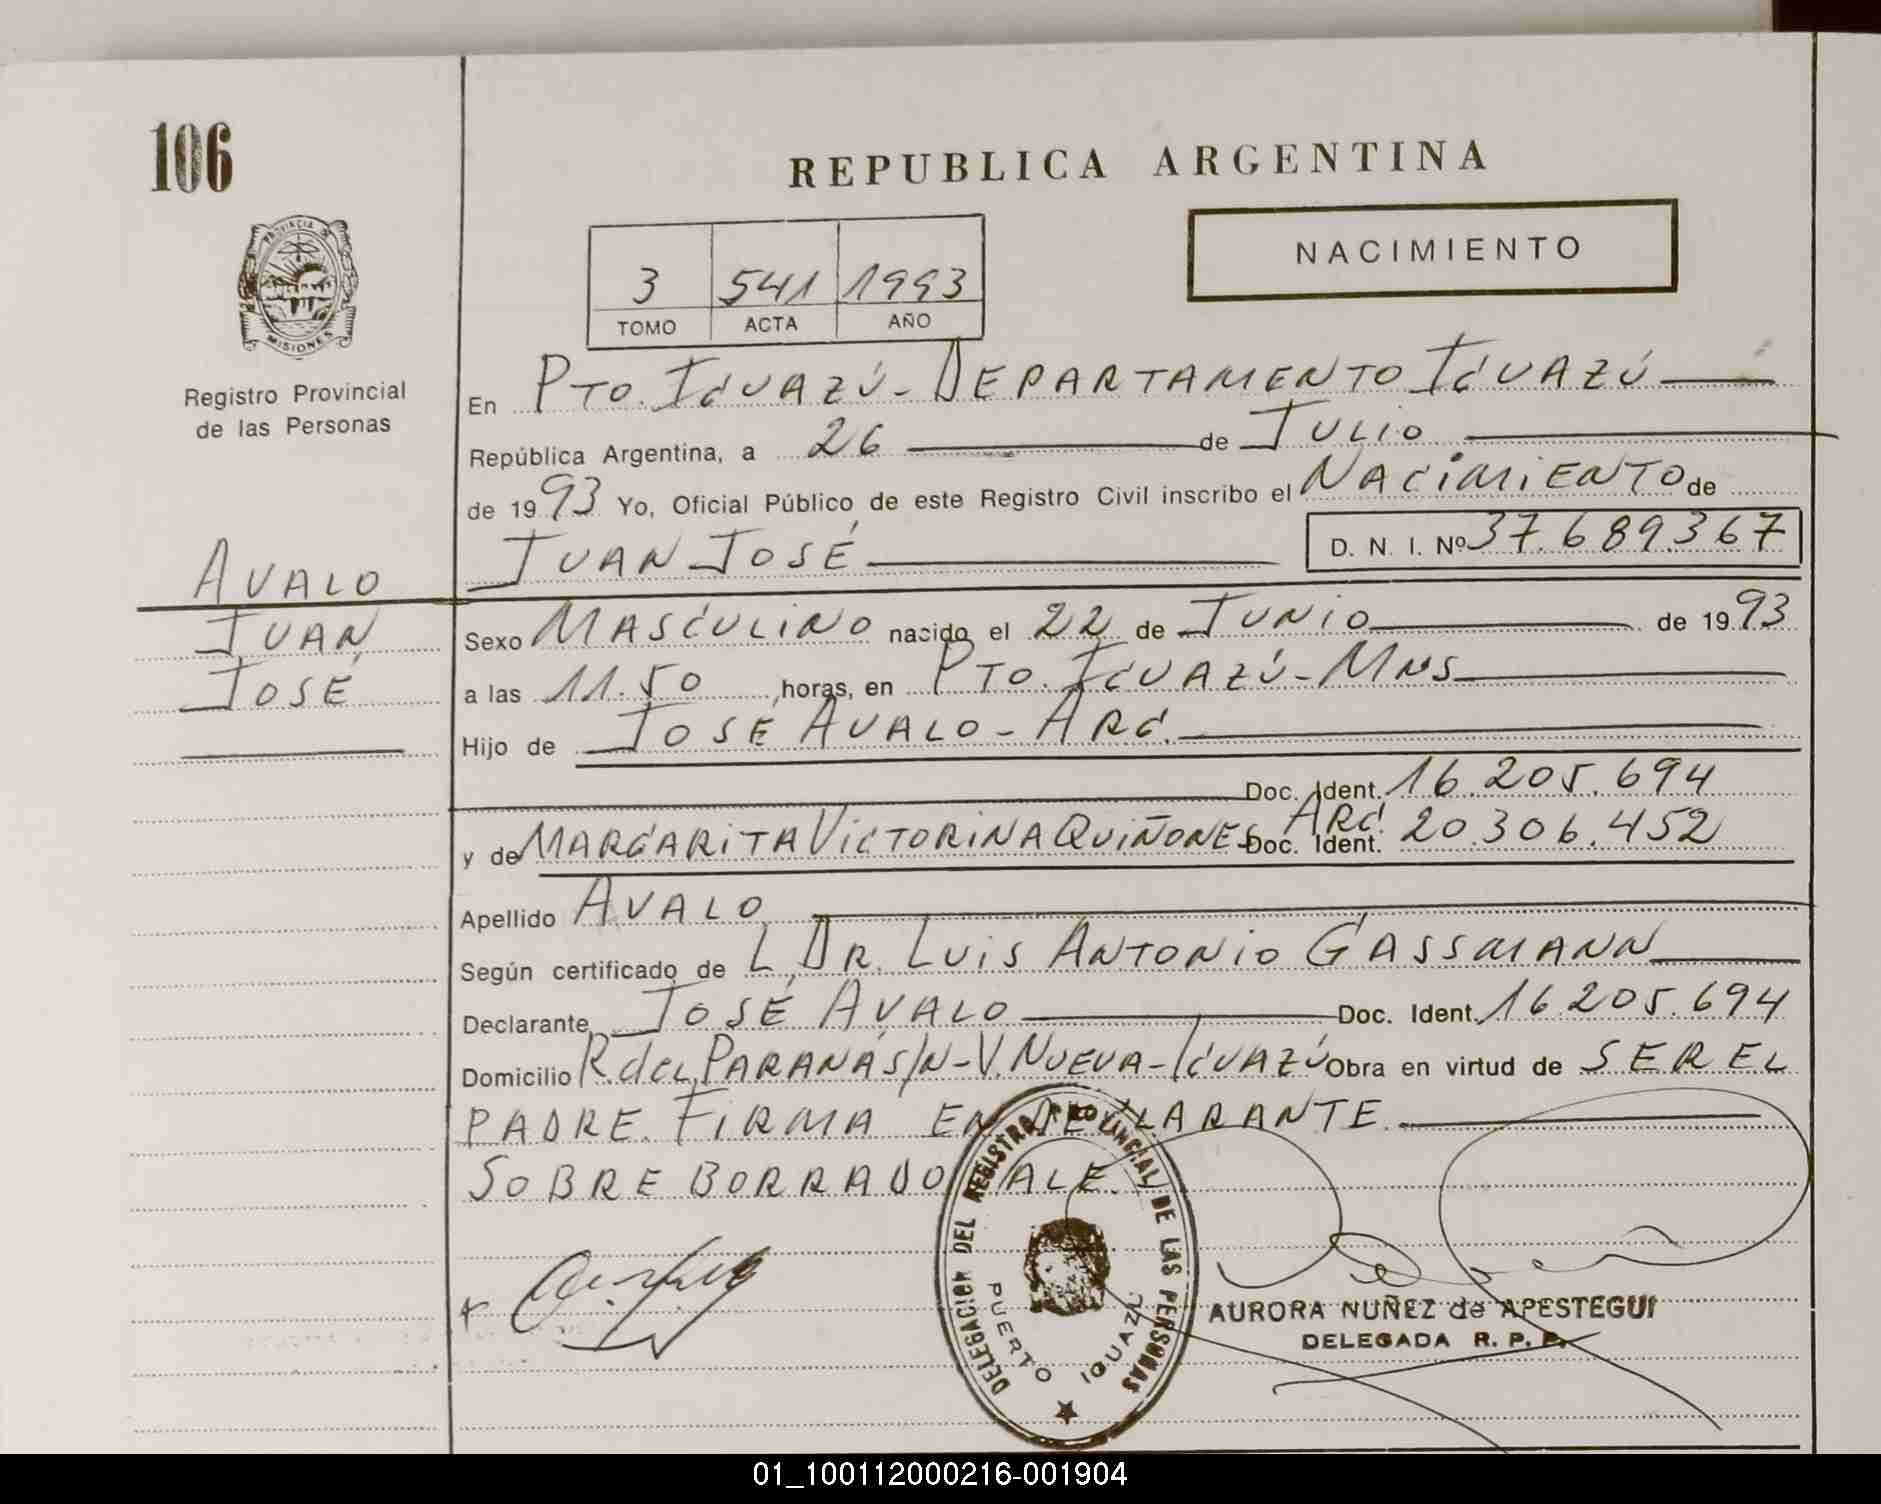 106
REPUBLICA ARGENTINA
PROVINCIA DE
MISIONES
Registro Provincial
de las Personas
NACIMIENTO
3 541 1993
TOMO ACTA AÑO
En PTO. IGUAZÚ - DEPARTAMENTO IGUAZÚ
República Argentina, a 26 de JULIO
de 1993 Yo, Oficial Público de este Registro Civil inscribo el NACIMIENTO de
JUAN JOSÉ D. N. I. Nº 37.689.367
AVALO
JUAN
JOSÉ
Sexo MASCULINO nacido el 22 de JUNIO de 1993
a las 11.50 horas, en PTO. IGUAZÚ - MNS
Hijo de JOSÉ AVALO - ARG.
Doc. Ident. 16.205.694
y de MARGARITA VICTORINA QUIÑONES ARG. Doc. Ident. 20.306.452
Apellido AVALO
Según certificado de L DR. LUIS ANTONIO GASSMANN
Declarante JOSÉ AVALO Doc. Ident. 16.205.694
Domicilio R. del PARANÁ S/N - V. NUEVA - IGUAZÚ Obra en virtud de SER EL
PADRE. FIRMA EN DECLARANTE
SOBRE BORRADO VALE.
DELEGACION DEL REGISTRO PROVINCIAL DE LAS PERSONAS
PUERTO IGUAZU
AURORA NUÑEZ de APESTEGUI
DELEGADA R. P. P.
01_100112000216-001904